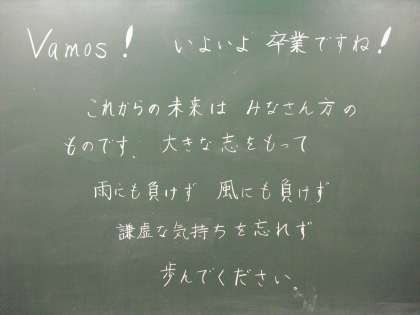 Vamos! いよいよ 卒業ですね!
これからの未来は みなさん方の
ものです. 大きな志をもって
雨にも負けず 風にも負けず
謙虚な気持ちを忘れず
歩んでください。